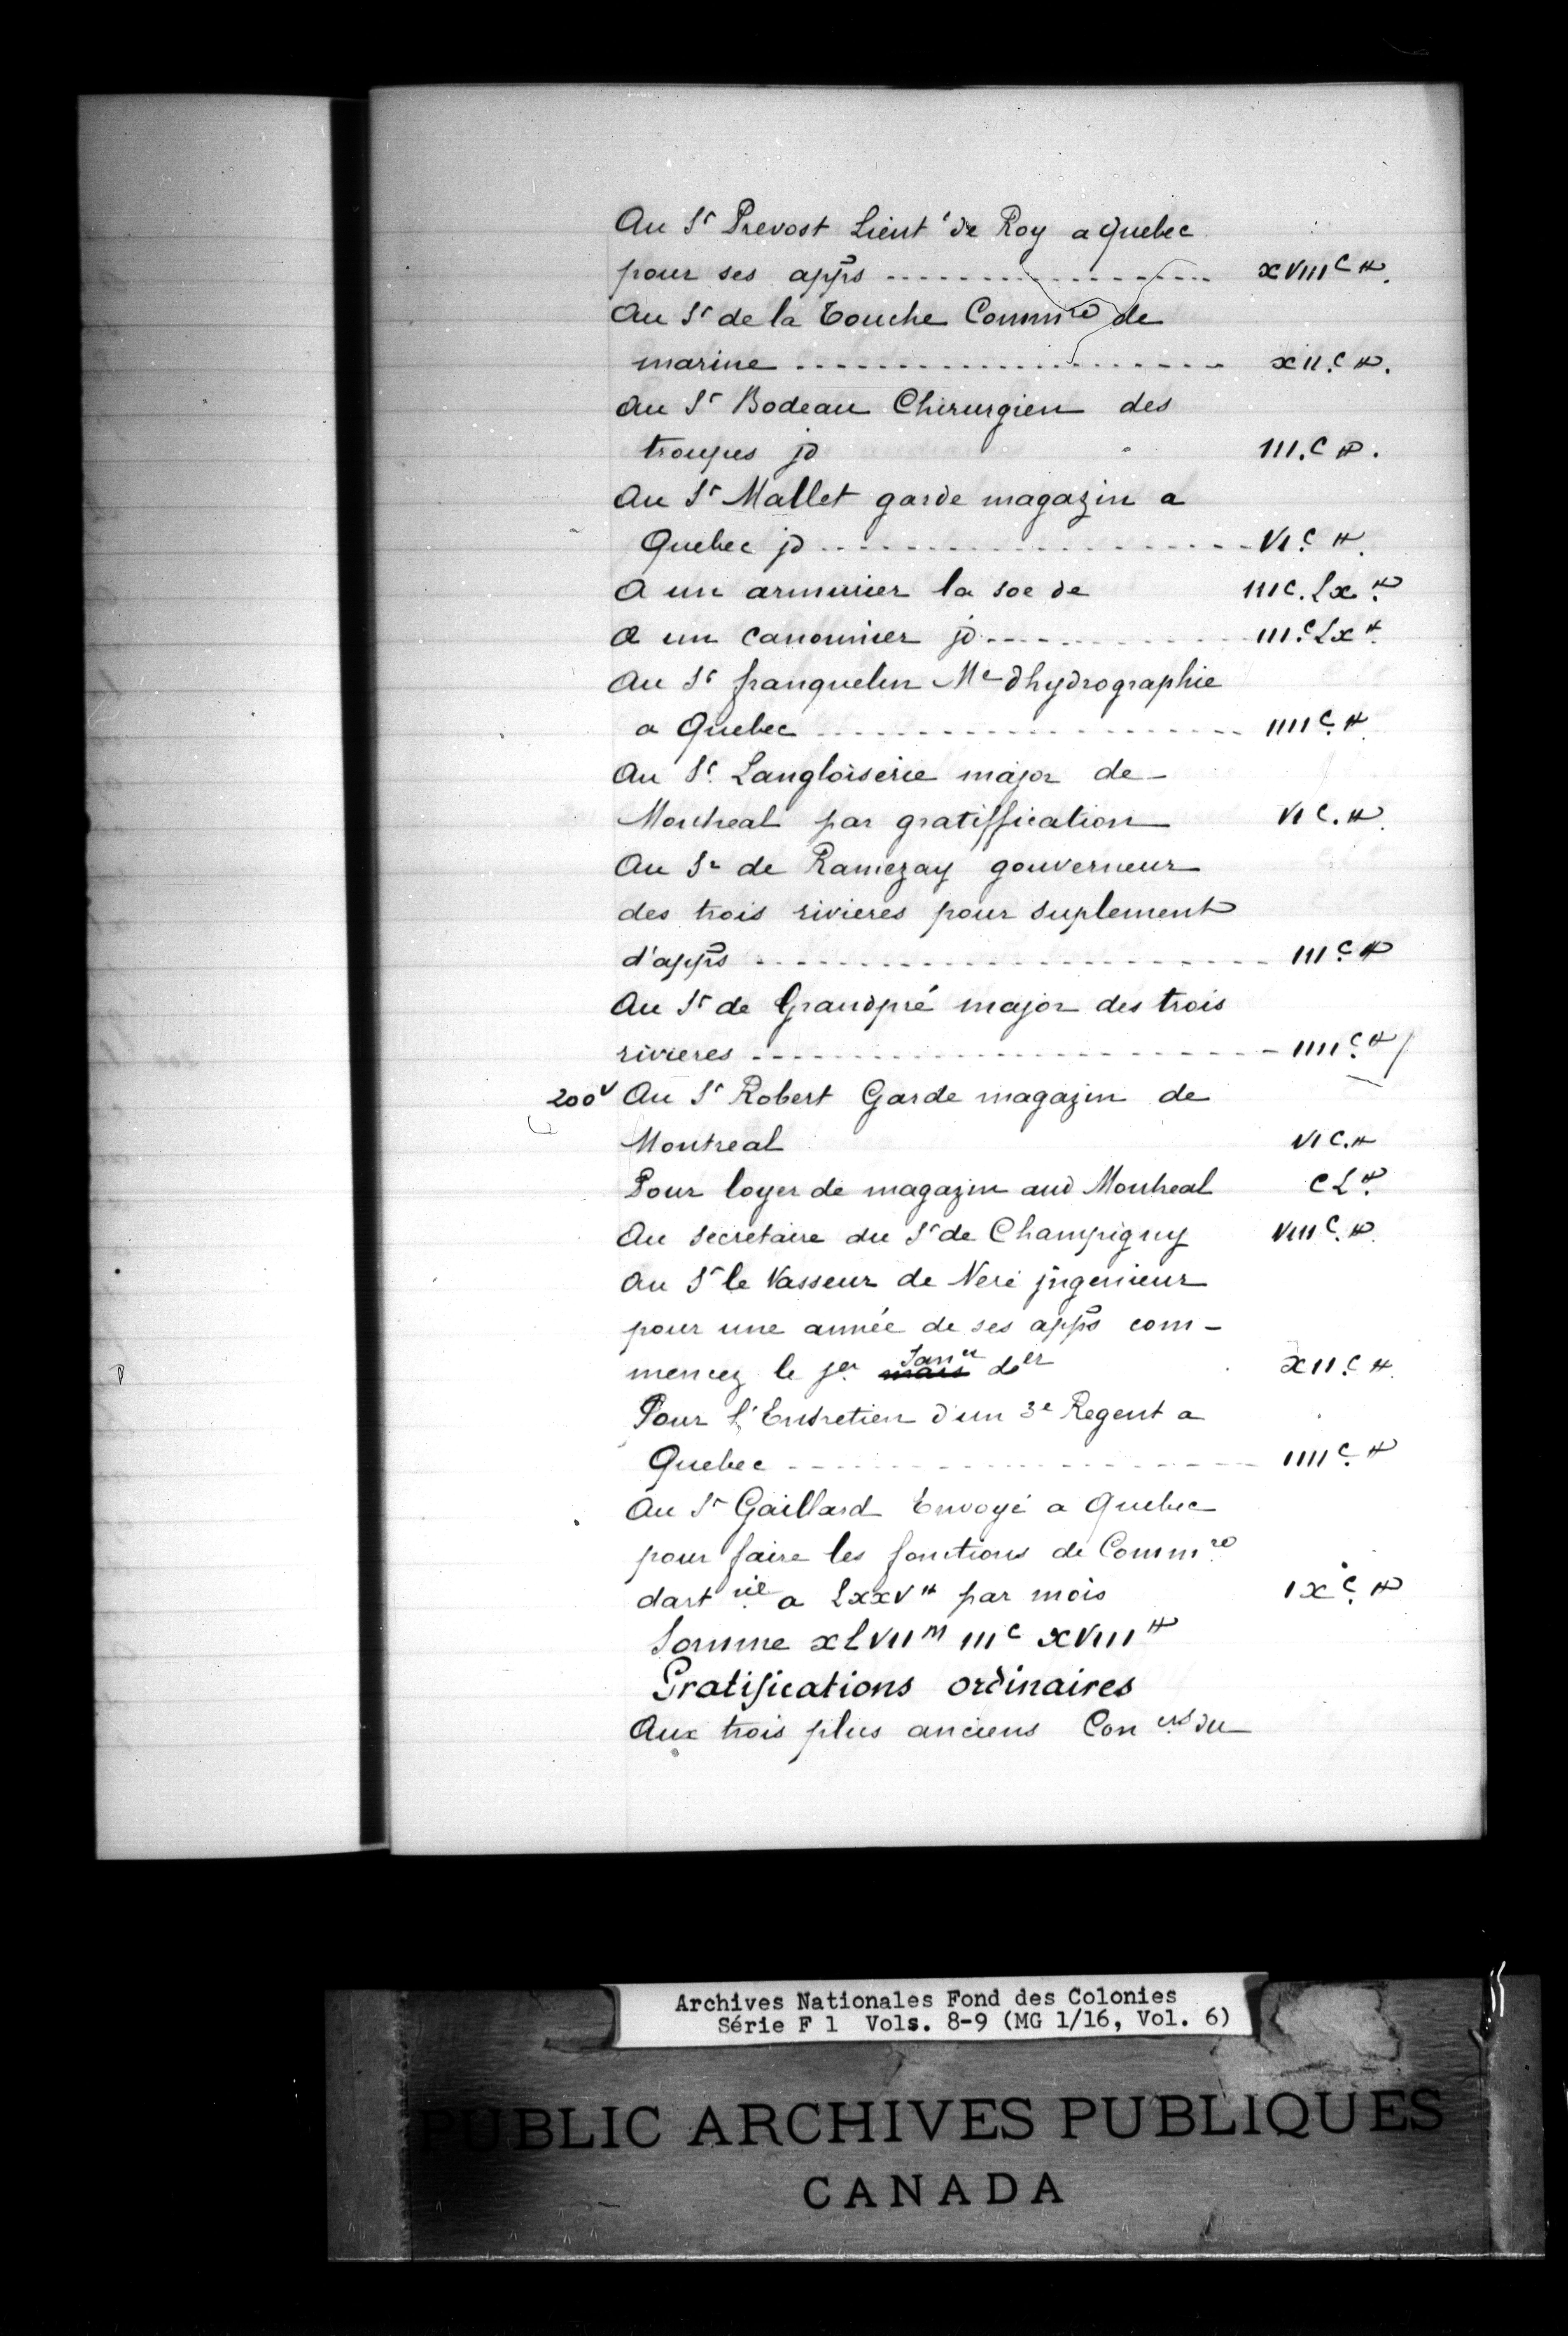 Au Sr Prevost Lieut t de Roy a Quebec
pour ses appñs -------------------- XVIIIC ₶.
Au Sr de la Touche Commre de
marine -------------------- XII.C ₶.
Au Sr Bodeau Chirurgien des
troupes jd III.C ₶.
Au Sr Mallet garde magazin a
Quebec jd -------------------- VI.C ₶.
A un armurier la soe de IIIC.Lx ₶
A un canonnier jd ------------ III.CLx ₶
Au Sr franquelin Me dhydrographie
a Quebec -------------------- IIIIC ₶
Au Sr Langloiserie major de -
Montreal par gratiffication VIC.₶
Au Sr de Ramezay gouverneur
des trois rivieres pour suplement
d'appñs -------------------- IIIC ₶
Au Sr de Grandpré major des trois
rivieres -------------------- IIIIC ₶
200v Au Sr Robert Garde magazin de
Montreal VIC.₶
Pour loyer de magazin aud Montreal CL ₶
Au Secretaire du Sr de Champigny VIIIC.₶
Au Sr le Vasseur de Neré jngenieur
pour une année de ses appñs com -
mencez le jer mars Janer der XII.C ₶
Pour l'Entretien d'un 3e Regent a
Quebec -------------------- IIIIC ₶
Au Sr Gaillard Envoyé a Quebec
pour faire les fonctions de Commre
dart rie a LxxV ₶ par mois IXC ₶
Somme XLVIIm IIIC XVIII ₶
Gratifications ordinaires
Aux trois plus anciens Con ers du
Archives Nationales Fond des Colonies
Série F 1 Vols. 8-9 (MG 1/16, Vol. 6)
PUBLIC ARCHIVES PUBLIQUES
CANADA